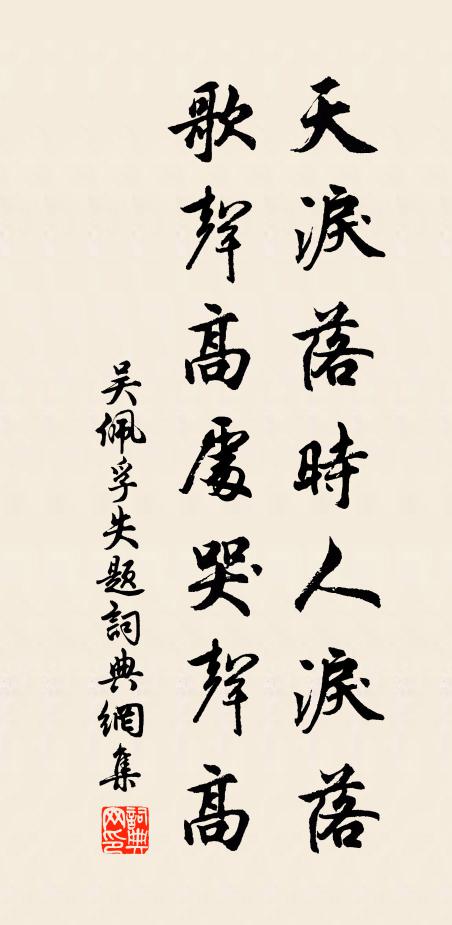 天淚落時人淚落
歌聲高處哭聲高
吳佩孚失題詞典網集
詞典網印